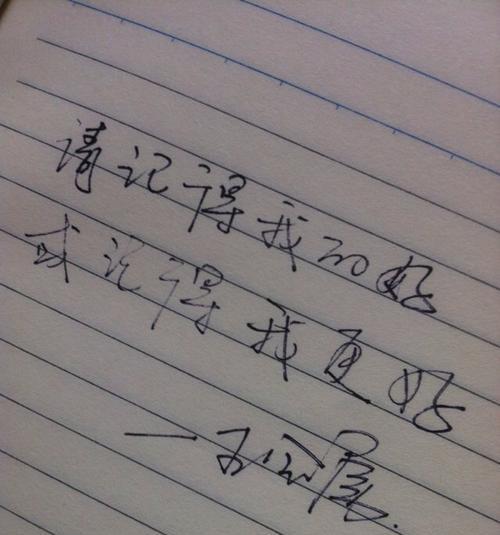 请记得我的好
或记得我更好